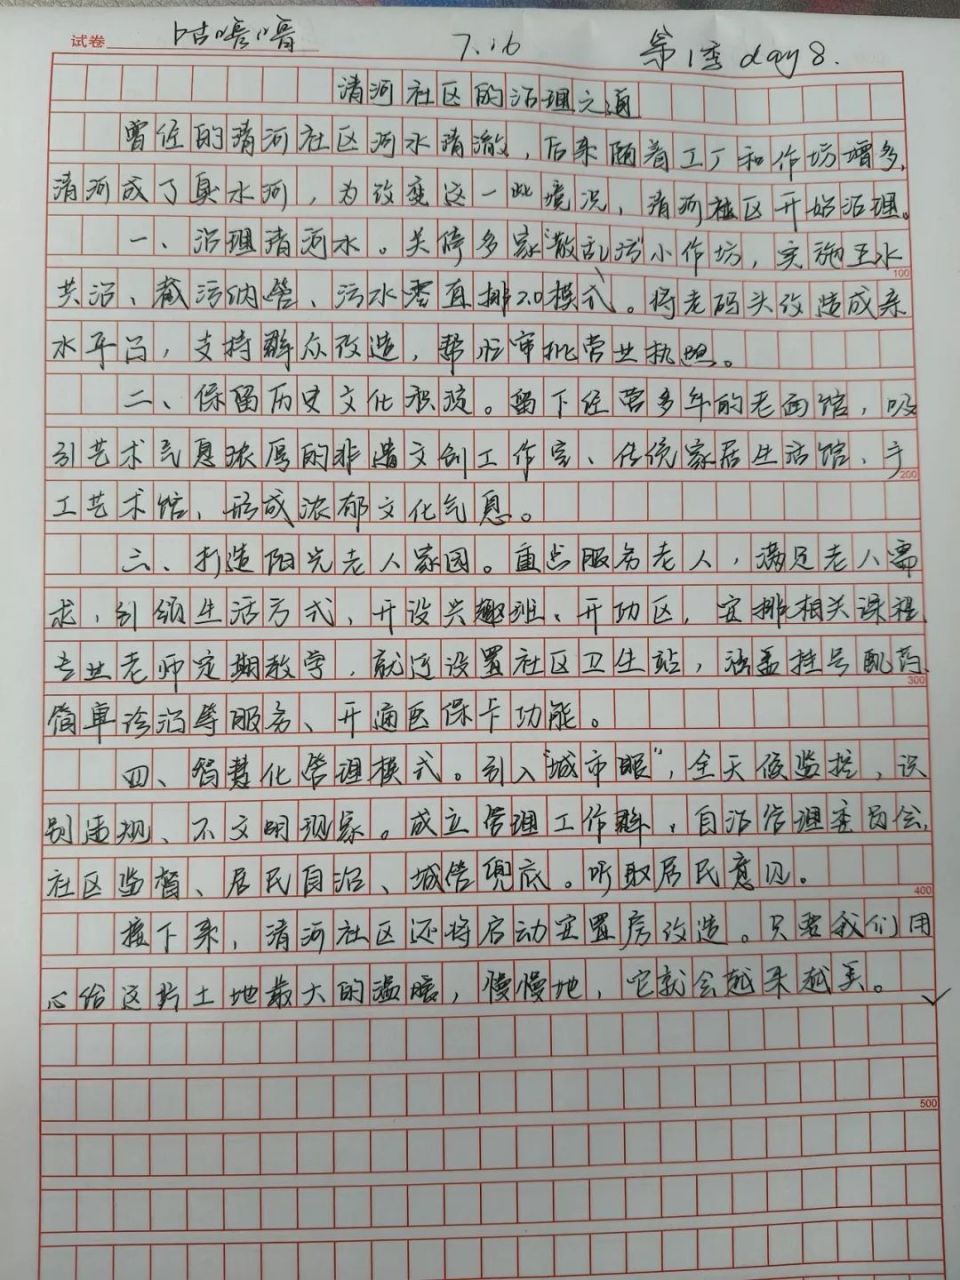 试卷 咕噜噜 7.16 第1季 day8.
清河社区的治理之道
曾经的清河社区河水清澈,后来随着工厂和作坊增多,
清河成了臭水河,为改变这一些境况,清河社区开始治理。
一、治理清河水。关停多家“散乱污”小作坊,实施五水
100
共治、截污纳管、污水零直排2.0模式。将老码头改造成亲
水平台,支持群众改造,帮忙审批营业执照。
二、保留历史文化积淀。留下经营多年的老面馆,吸
引艺术气息浓厚的非遗文创工作室、传统家居生活馆、手
200
工艺术馆,形成浓郁文化气息。
三、打造阳光老人家园。重点服务老人,满足老人需
求,引领生活方式,开设兴趣班、开功区,安排相关课程,
专业老师定期教学,就近设置社区卫生站,涵盖挂号配药、
300
简单诊治等服务、开通医保卡功能。
四、智慧化管理模式。引入“城市眼”,全天候监控,识
别违规、不文明现象。成立管理工作群、自治管理委员会,
社区监督、居民自治、城管兜底。听取居民意见。
400
接下来,清河社区还将启动安置房改造。只要我们用
心给这片土地最大的温暖,慢慢地,它就会越来越美。
500